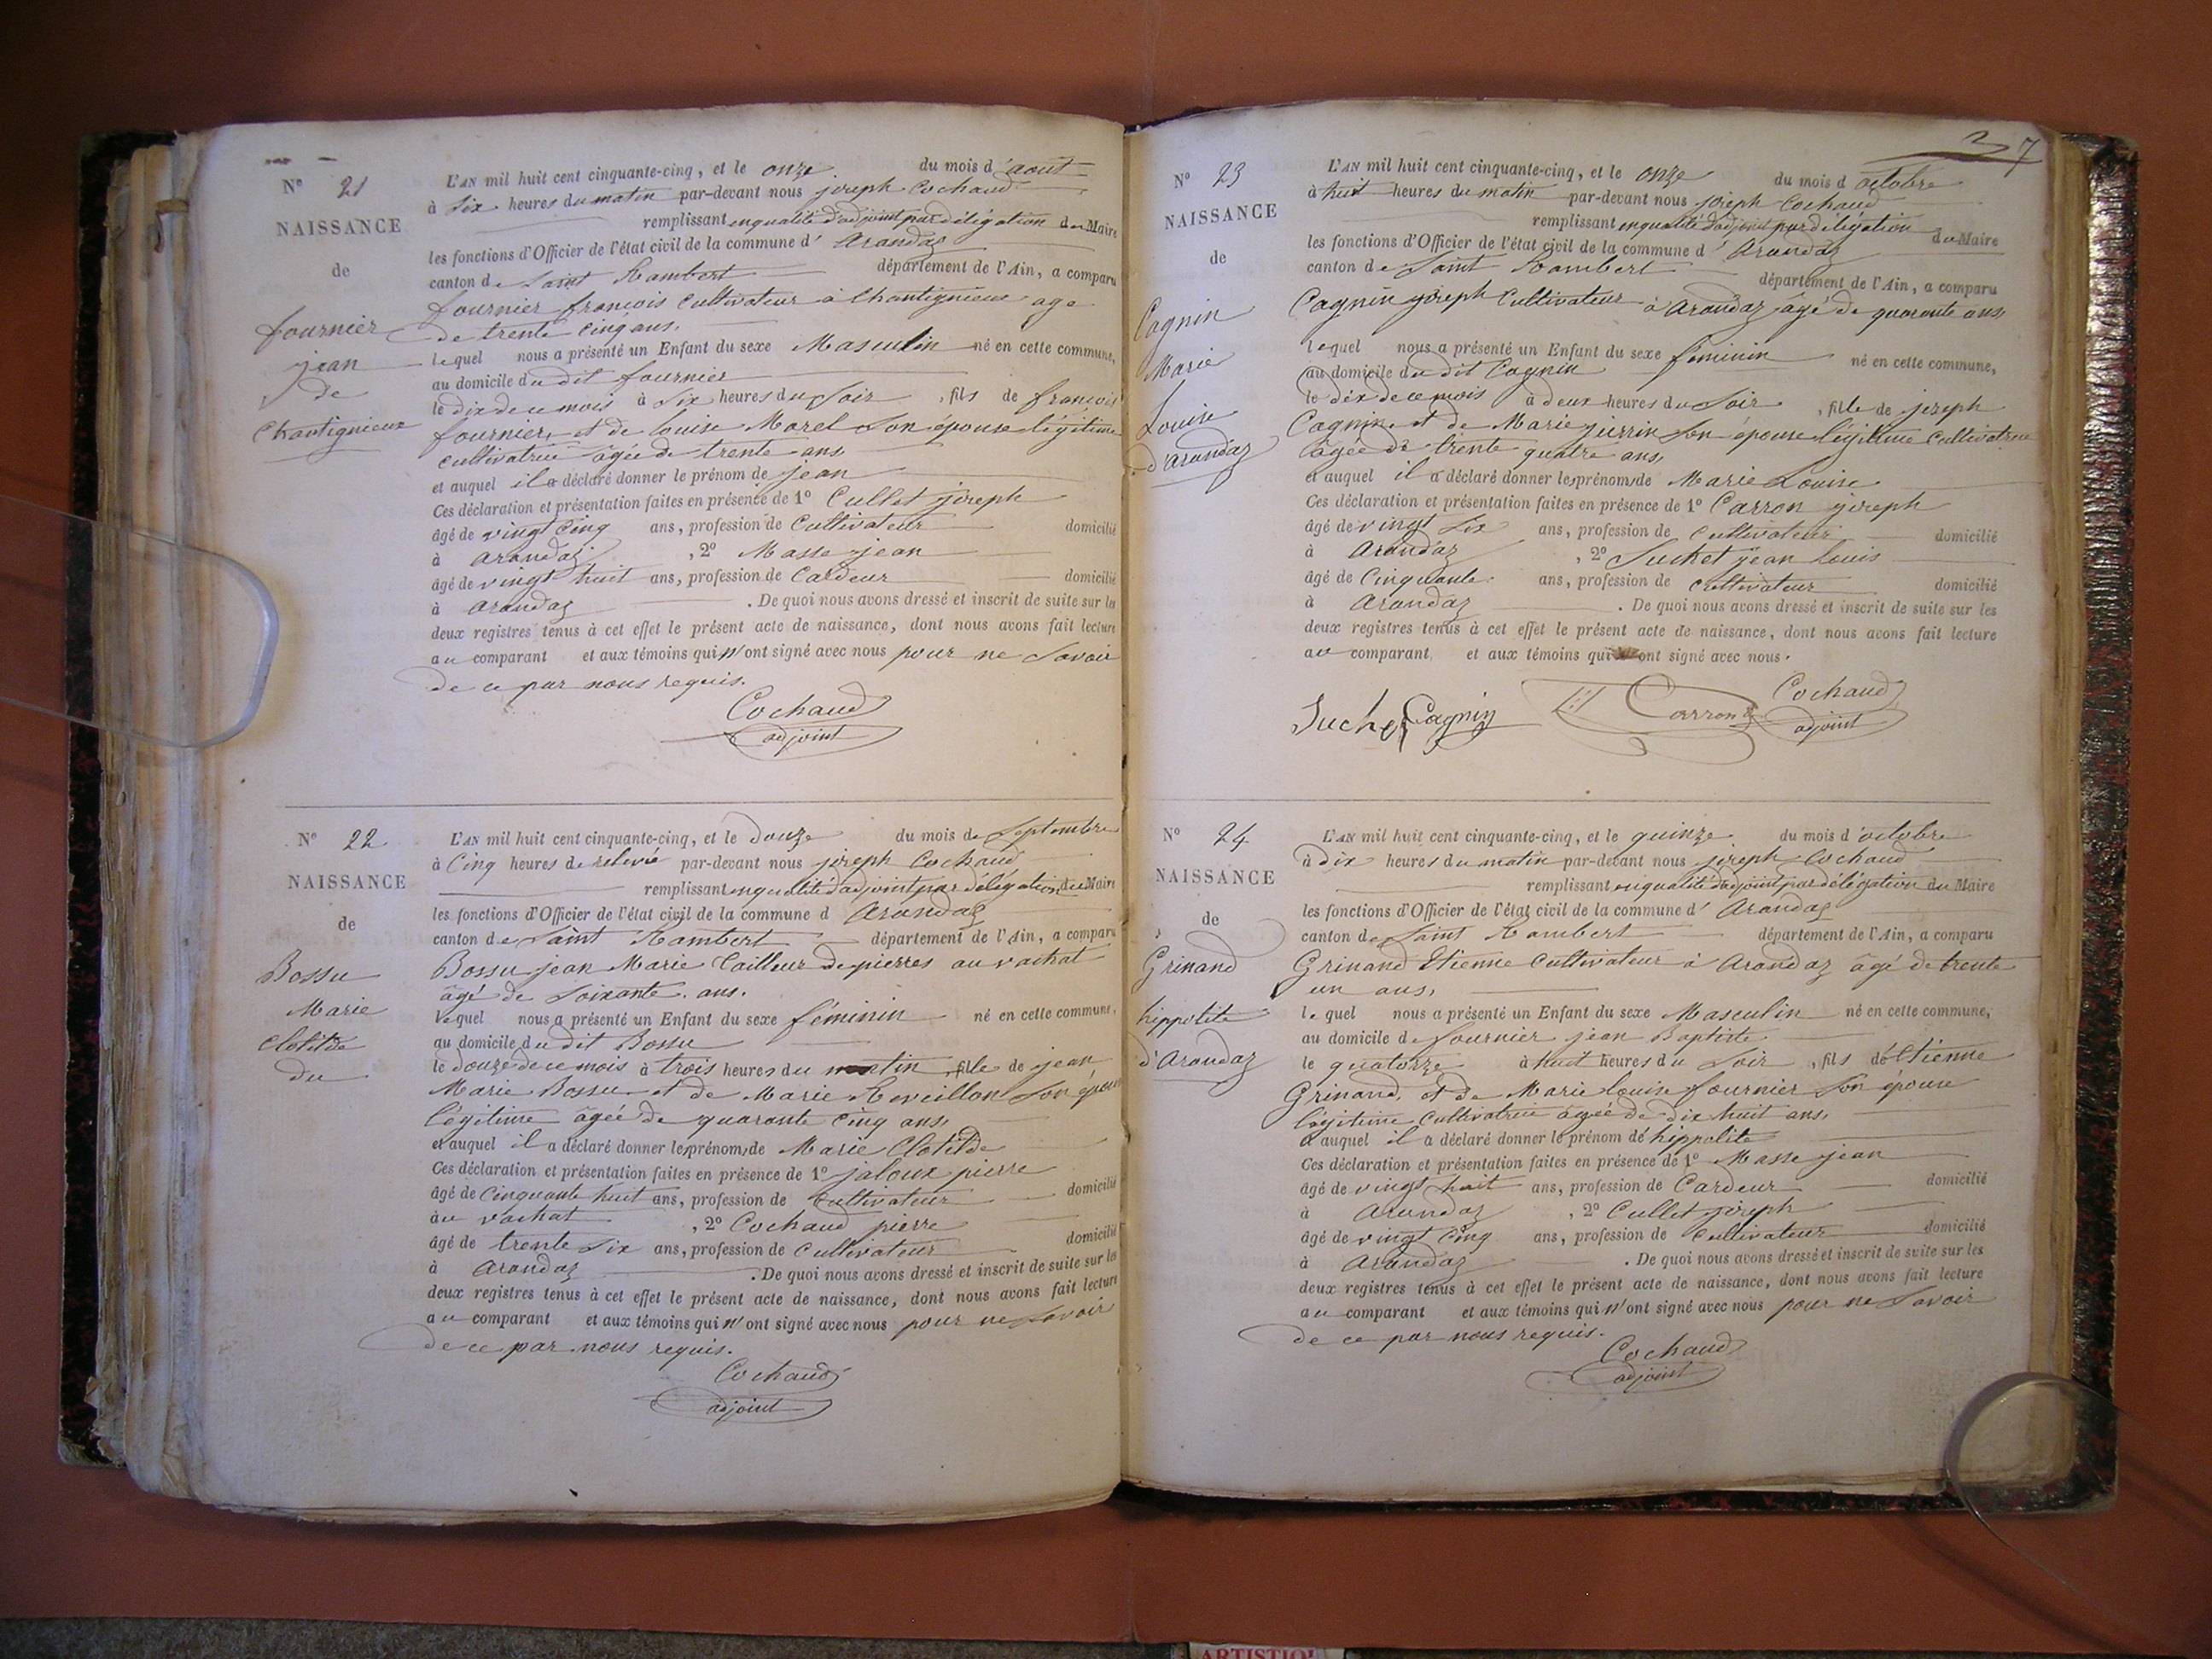 N° 21
NAISSANCE
de
fournier
jean
de
Chantignieux
L'AN mil huit cent cinquante-cinq, et le onze du mois d'aout
à Six heures du matin par-devant nous joseph Cochaud
remplissant en qualité d'adjoint par délégation du Maire
les fonctions d'Officier de l'état civil de la commune d' Arandaz
canton de Saint Rambert département de l'Ain, a comparu
fournier françois Cultivateur à Chantignieux age
de trente Cinq ans,
lequel nous a présenté un Enfant du sexe Masculin né en cette commune,
au domicile du dit fournier
le dix de ce mois à Six heures du Soir, fils de françois
fournier, et de louise Morel Son épouse légitime
cultivatrice agée de trente ans
et auquel il a déclaré donner le prénom de jean
Ces déclaration et présentation faites en présence de 1° Cullet joseph
âgé de vingt Cinq ans, profession de Cultivateur domicilié
à Arandaz, 2° Masse jean
âgé de vingt huit ans, profession de Cardeur domicilié
à Arandaz. De quoi nous avons dressé et inscrit de suite sur les
deux registres tenus à cet effet le présent acte de naissance, dont nous avons fait lecture
au comparant et aux témoins qui n'ont signé avec nous pour ne Savoir
de ce par nous requis.
Cochaud
adjoint
N° 22
NAISSANCE
de
Bossu
Marie
Clotilde
du
L'AN mil huit cent cinquante-cinq, et le douze du mois de Septembre
à Cinq heures de relevée par-devant nous joseph Cochaud
remplissant en qualité d'adjoint par délégation du Maire
les fonctions d'Officier de l'état civil de la commune d Arandaz
canton de Saint Rambert département de l'Ain, a comparu
Bossu jean Marie Tailleur de pierres au vachat
âgé de Soixante ans.
lequel nous a présenté un Enfant du sexe féminin né en cette commune,
au domicile du dit Bossu
le douze de ce mois à trois heures du matin, fille de jean
Marie Bossu et de Marie Reveillon Son épouse
légitime âgée de quarante cinq ans,
et auquel il a déclaré donner les prénoms de Marie Clotilde
Ces déclaration et présentation faites en présence de 1° jaloux pierre
âgé de Cinquante huit ans, profession de Cultivateur domicilié
au vachat, 2° Cochaud pierre
âgé de trente Six ans, profession de Cultivateur domicilié
à Arandaz. De quoi nous avons dressé et inscrit de suite sur les
deux registres tenus à cet effet le présent acte de naissance, dont nous avons fait lecture
au comparant et aux témoins qui n'ont signé avec nous pour ne Savoir
de ce par nous requis.
Cochaud
adjoint
7
N° 23
NAISSANCE
de
Cagnin
Marie
Louise
d'arandaz
L'AN mil huit cent cinquante-cinq, et le onze du mois d octobre
à huit heures du matin par-devant nous joseph Cochaud
remplissant en qualité d'adjoint par délégation du Maire
les fonctions d'Officier de l'état civil de la commune d' Arandaz
canton de Saint Rambert département de l'Ain, a comparu
Cagnin joseph Cultivateur à Arandaz âgé de quarante ans,
lequel nous a présenté un Enfant du sexe féminin né en cette commune,
au domicile du dit Cagnin
le dix de ce mois à deux heures du Soir, fille de joseph
Cagnin et de Marie Son épouse légitime Cultivatrice
âgée de trente quatre ans,
et auquel il a déclaré donner les prénoms de Marie Louise
Ces déclaration et présentation faites en présence de 1° Carron joseph
âgé de vingt Six ans, profession de Cultivateur domicilié
à Arandaz, 2° Suchet jean Louis
âgé de Cinquante ans, profession de Cultivateur domicilié
à Arandaz. De quoi nous avons dressé et inscrit de suite sur les
deux registres tenus à cet effet le présent acte de naissance, dont nous avons fait lecture
au comparant, et aux témoins qui ont signé avec nous.
Suchet Cagnin Carron Cochaud
adjoint
N° 24
NAISSANCE
de
Grinand
hippolite
d'Arandaz
L'AN mil huit cent cinquante-cinq, et le quinze du mois d'octobre
à dix heures du matin par-devant nous joseph Cochaud
remplissant en qualité d'adjoint par délégation du Maire
les fonctions d'Officier de l'état civil de la commune d' Arandaz
canton de Saint Rambert département de l'Ain, a comparu
Grinand Etienne Cultivateur à Arandaz âgé de trente
un ans,
lequel nous a présenté un Enfant du sexe Masculin né en cette commune,
au domicile de fournier jean Baptiste
le quatorze à huit heures du Soir, fils d'Etienne
Grinand, et de Marie louise fournier Son épouse
légitime cultivatrice agée de dix huit ans,
et auquel il a déclaré donner le prénom de hippolite
Ces déclaration et présentation faites en présence de 1° Masse jean
âgé de vingt huit ans, profession de Cardeur domicilié
à Arandaz, 2° Cullet joseph
âgé de vingt Cinq ans, profession de Cultivateur domicilié
à Arandaz. De quoi nous avons dressé et inscrit de suite sur les
deux registres tenus à cet effet le présent acte de naissance, dont nous avons fait lecture
au comparant et aux témoins qui n'ont signé avec nous pour ne Savoir
de ce par nous requis.
Cochaud
adjoint